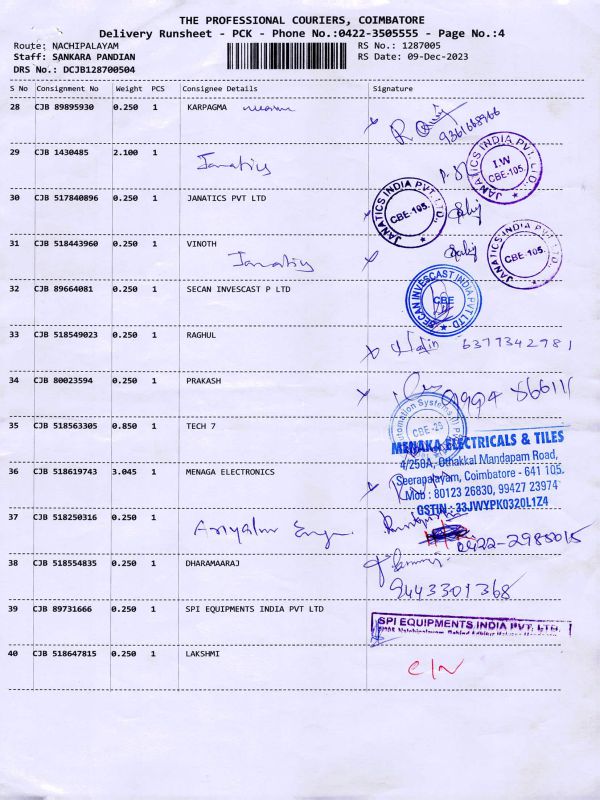 THE PROFESSIONAL COURIERS, COIMBATORE
Delivery Runsheet - PCK - Phone No.:0422-3505555 - Page No.:4
Route: NACHIPALAYAM
RS No.: 1287005
Staff: SANKARA PANDIAN
RS Date: 09-Dec-2023
DRS No.: DCJB128700504
S No Consignment No Weight PCS Consignee Details Signature
28 CJB 89895930 0.250 1 KARPAGMA
9361668966
29 CJB 1430485 2.100 1 Janatics
JANATICS INDIA PVT. LTD.
I.W
CBE-105.
30 CJB 517840896 0.250 1 JANATICS PVT LTD
JANATICS INDIA PVT. LTD.
CBE-105.
31 CJB 518443960 0.250 1 VINOTH
Janatics
JANATICS INDIA PVT. LTD.
CBE-105.
32 CJB 89664081 0.250 1 SECAN INVESCAST P LTD
SECAN INVESCAST INDIA PVT LTD
CBE
33 CJB 518549023 0.250 1 RAGHUL
6377342981
34 CJB 80023594 0.250 1 PRAKASH
35 CJB 518563305 0.850 1 TECH 7
Automation Systems
CBE-25
MENAKA ELECTRICALS & TILES
4/250A, Othakkal Mandapam Road,
Seerapalayam, Coimbatore - 641 105.
Mob : 80123 26830, 99427 23974
GSTIN : 33JWYPK0320L1Z4
36 CJB 518619743 3.045 1 MENAGA ELECTRONICS
37 CJB 518250316 0.250 1
0422-2980015
38 CJB 518554835 0.250 1 DHARAMAARAJ
9443301368
39 CJB 89731666 0.250 1 SPI EQUIPMENTS INDIA PVT LTD
SPI EQUIPMENTS INDIA PVT. LTD.
40 CJB 518647815 0.250 1 LAKSHMI